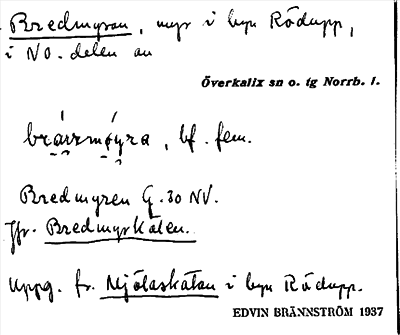 Bredmyran, myr i byn Rödupp,
i NO. delen av
Överkalix sn o. tg Norrb. l.
brárrmóyra, bf. fem.
Bredmyren G. 30 NV.
Jfr. Bredmyrkölen.
Uppg. fr. Mjölaskatan i byn Rödupp.
EDVIN BRÄNNSTRÖM 1937